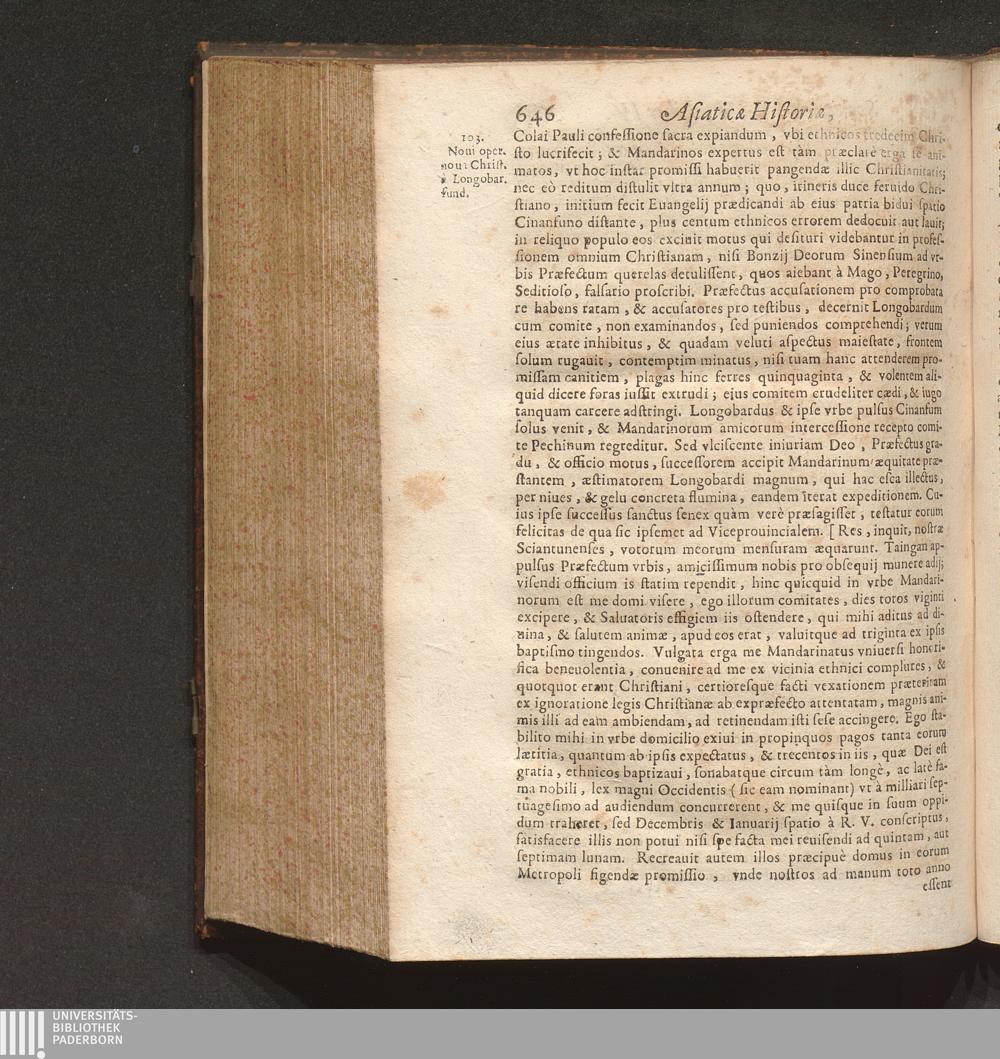 646 Asiaticæ Historiæ,
103.
Noui oper.
noui Christ.
à Longobar.
fund.
Colai Pauli confessione sacra expiandum, vbi ethnicos tredecim Chri-
sto lucrifecit; & Mandarinos expertus est tàm præclarè erga se ani-
matos, vt hoc instar promissi habuerit pangendæ illic Christianitatis;
nec eò reditum distulit vltra annum; quo, itineris duce feruido Chri-
stiano, initium fecit Euangelij prædicandi ab eius patria bidui spatio
Cinanfuno distante, plus centum ethnicos errorem dedocuit aut lauit;
in reliquo populo eos exciuit motus qui desituri videbantur in profes-
sionem omnium Christianam, nisi Bonzij Deorum Sinensium ad vr-
bis Præfectum querelas detulissent, quos aiebant à Mago, Peregrino,
Seditioso, falsario proscribi. Præfectus accusationem pro comprobata
re habens ratam, & accusatores pro testibus, decernit Longobardum
cum comite, non examinandos, sed puniendos comprehendi; verum
eius ætate inhibitus, & quadam veluti aspectus maiestate, frontem
solum rugauit, contemptim minatus, nisi tuam hanc attenderem pro-
missam canitiem, plagas hinc ferres quinquaginta, & volentem ali-
quid dicere foras iussit extrudi; eius comitem crudeliter cædi, & iugo
tanquam carcere adstringi. Longobardus & ipse vrbe pulsus Cinanfum
solus venit, & Mandarinorum amicorum intercessione recepto comi-
te Pechinum regreditur. Sed vlciscente iniuriam Deo, Præfectus gra-
du, & officio motus, successorem accipit Mandarinum æquitate præ-
stantem, æstimatorem Longobardi magnum, qui hac esca illectus,
per niues, & gelu concreta flumina, eandem iterat expeditionem. Cu-
ius ipse successus sanctus senex quàm verè præsagisset, testatur eorum
felicitas de qua sic ipsemet ad Viceprouincialem. [ Res, inquit, nostræ
Sciantunenses, votorum meorum mensuram æquarunt. Taingan ap-
pulsus Præfectum vrbis, amicissimum nobis pro obsequij munere adij;
visendi officium is statim rependit, hinc quicquid in vrbe Mandari-
norum est me domi visere, ego illorum comitates, dies totos viginti
excipere, & Saluatoris effigiem iis ostendere, qui mihi aditus ad di-
uina, & salutem animæ, apud eos erat, valuitque ad triginta ex ipsis
baptismo tingendos. Vulgata erga me Mandarinatus vniuersi honori-
fica beneuolentia, conuenire ad me ex vicinia ethnici complures, &
quotquot erant Christiani, certioresque facti vexationem præteritam
ex ignoratione legis Christianæ ab expræfecto attentatam, magnis ani-
mis illi ad eam ambiendam, ad retinendam isti sese accingere. Ego sta-
bilito mihi in vrbe domicilio exiui in propinquos pagos tanta eorum
lætitia, quantum ab ipsis expectatus, & trecentos in iis, quæ Dei est
gratia, ethnicos baptizaui, sonabatque circum tàm longè, ac latè fa-
ma nobili, lex magni Occidentis ( sic eam nominant) vt à milliari sep-
tuagesimo ad audiendum concurrerent, & me quisque in suum oppi-
dum traheret, sed Decembris & Ianuarij spatio à R. V. conscriptus,
satisfacere illis non potui nisi spe facta mei reuisendi ad quintam, aut
septimam lunam. Recreauit autem illos præcipuè domus in eorum
Metropoli figendæ promissio, vnde nostros ad manum toto anno
essent
UNIVERSITÄTS-
BIBLIOTHEK
PADERBORN